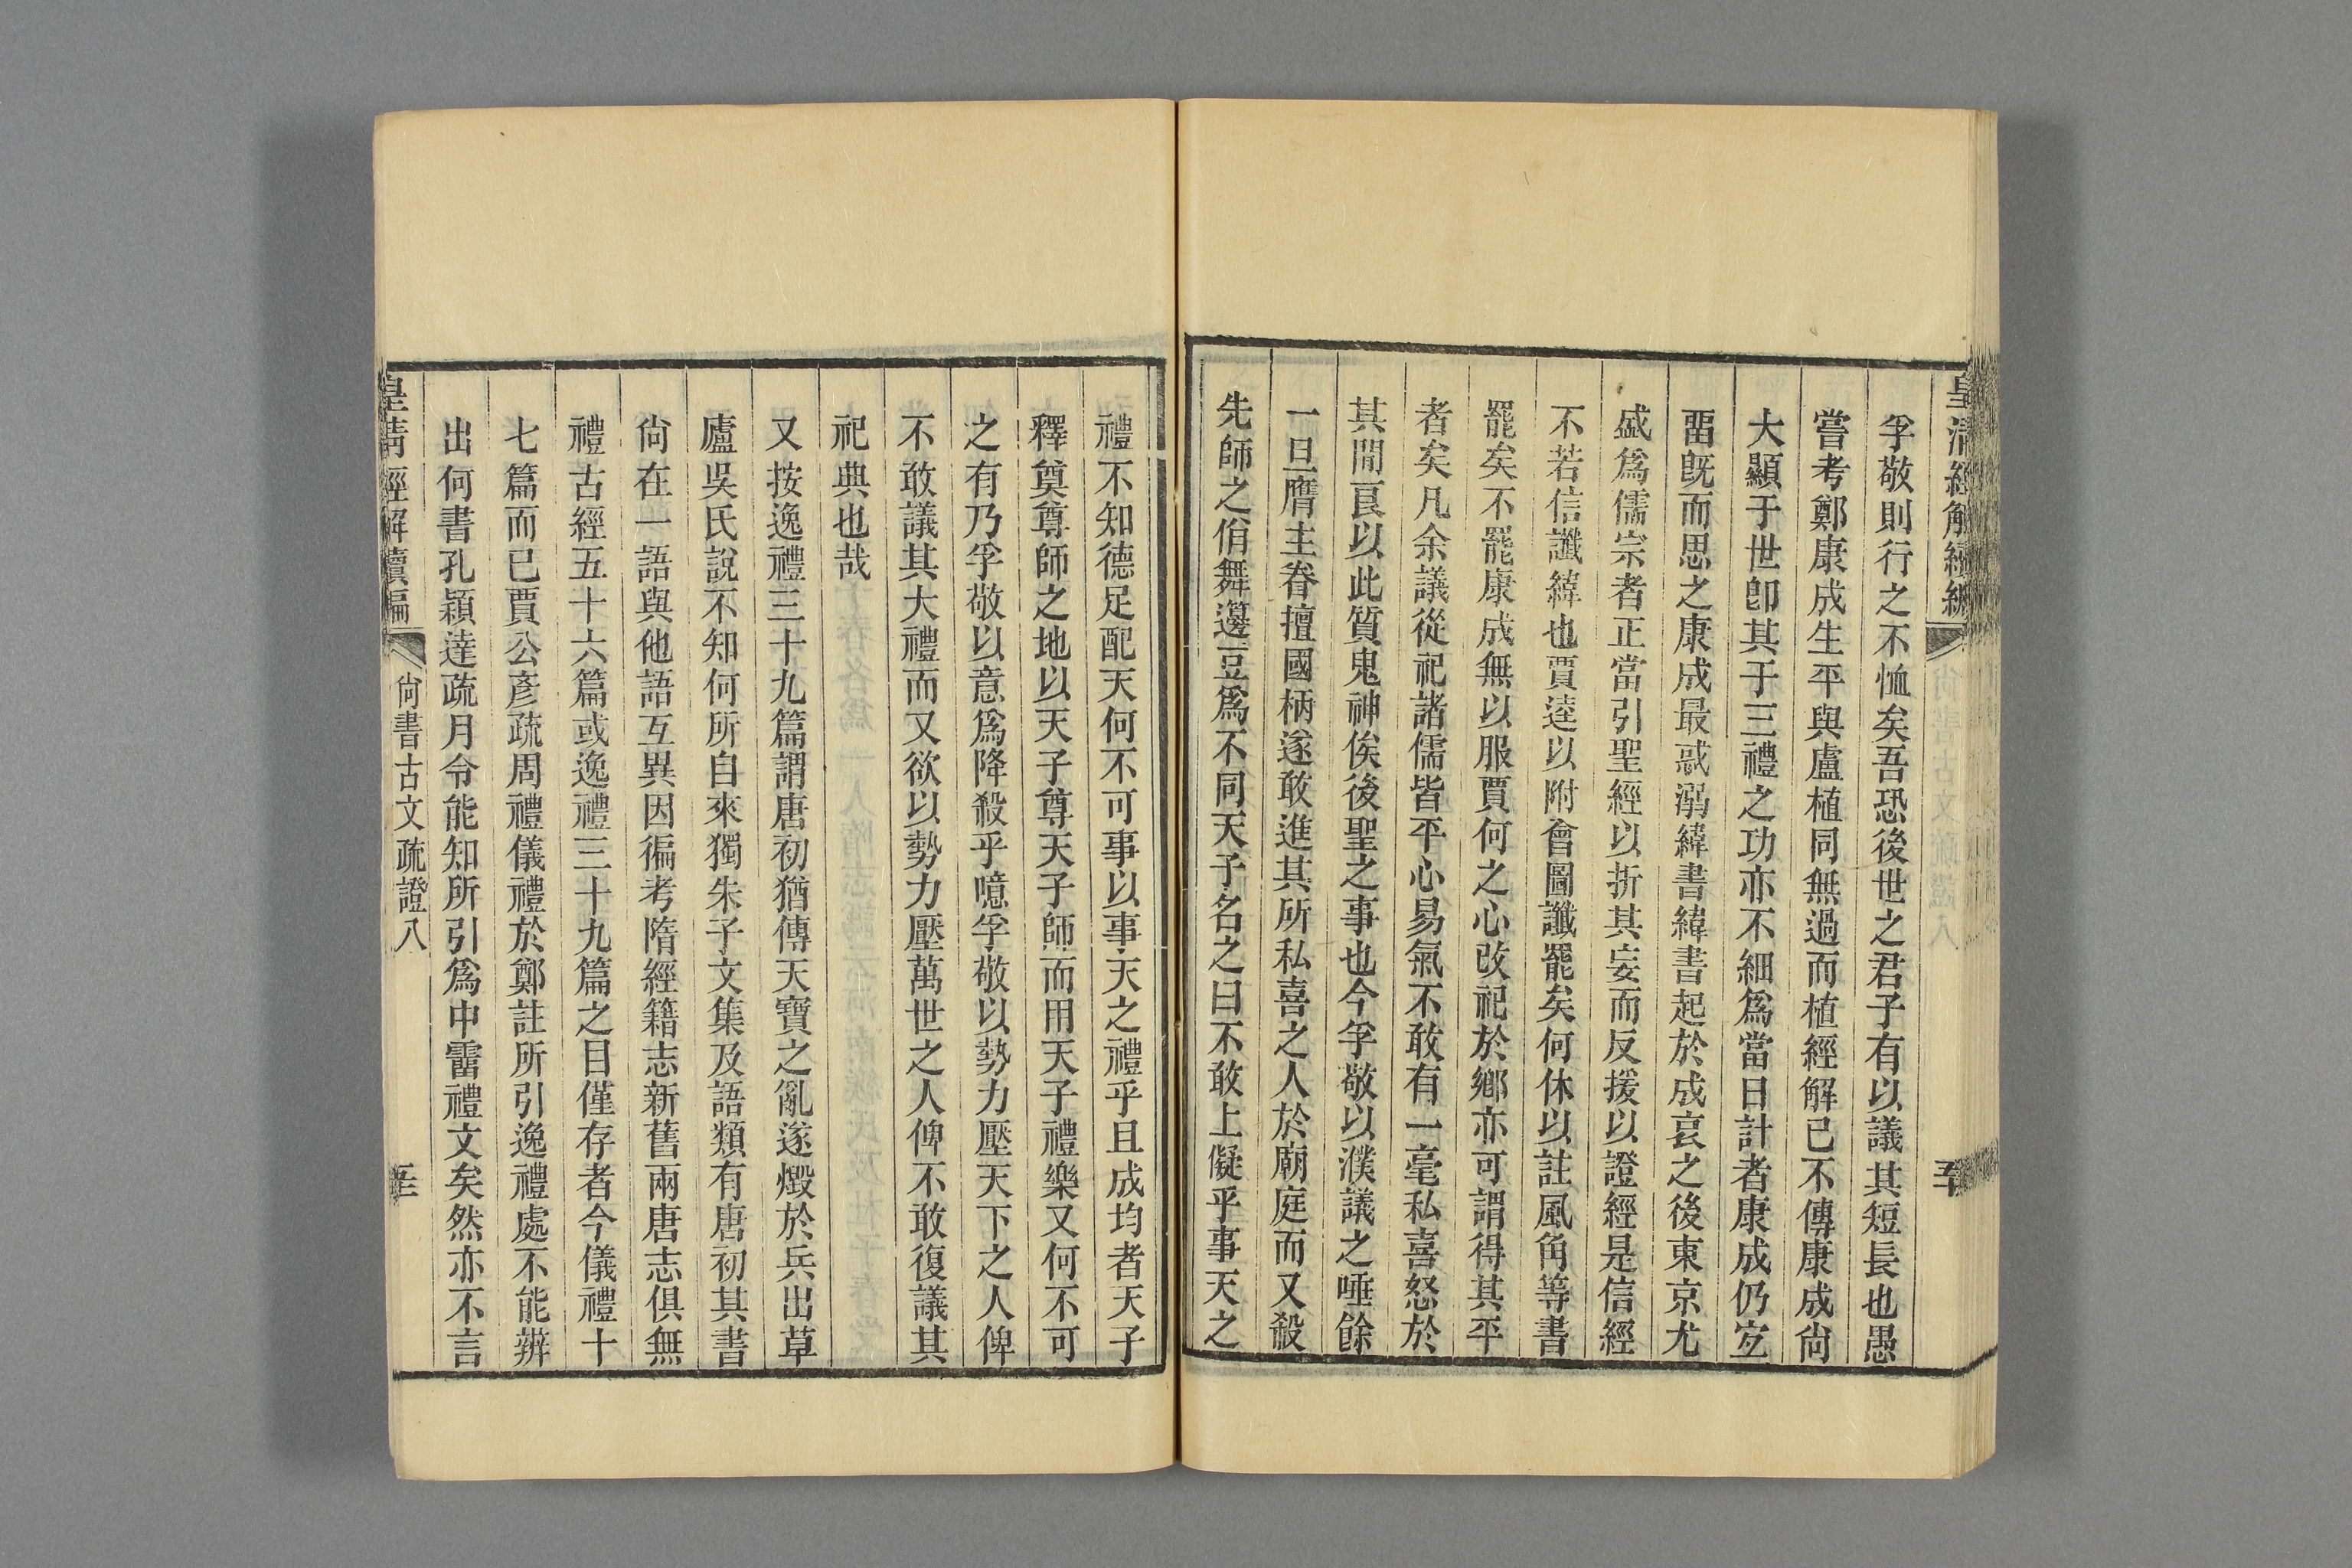 皇清經解續編
孚敬則行之不恤矣吾恐後世之君子有以議其短長也愚
嘗考鄭康成生平與盧植同無過而植經解已不傳康成尙
大顯于世卽其于三禮之功亦不細爲當日計者康成仍宐
畱旣而思之康成最惑溺緯書緯書起於成哀之後東京尤
盛爲儒宗者正當引聖經以折其妄而反援以證經是信經
不若信讖緯也賈逵以附會圖讖罷矣何休以註風角等書
罷矣不罷康成無以服賈何之心改祀於鄕亦可謂得其平
者矣凡余議從祀諸儒皆平心易氣不敢有一毫私喜怒於
其閒㒶以此質鬼神俟後聖之事也今孚敬以濮議之唾餘
一旦膺主眷擅國柄遂敢進其所私喜之人於廟庭而又殺
先師之佾舞籩豆爲不同天子名之曰不敢上儗乎事天之
禮不知德足配天何不可事以事天之禮乎且成均者天子
釋奠尊師之地以天子尊天子師而用天子禮樂又何不可
之有乃孚敬以意爲降殺乎噫孚敬以勢力壓天下之人俾
不敢議其大禮而又欲以勢力壓萬世之人俾不敢復議其
祀典也哉
又按逸禮三十九篇謂唐初猶傳天寶之亂遂燬於兵出草
廬吳氏說不知何所自來獨朱子文集及語類有唐初其書
尙在一語與他語互異因徧考隋經籍志新舊兩唐志俱無
禮古經五十六篇或逸禮三十九篇之目僅存者今儀禮十
七篇而已賈公彥疏周禮儀禮於鄭註所引逸禮處不能辨
出何書孔穎達疏月令能知所引爲中霤禮文矣然亦不言
皇清經解續編
尙書古文疏證八